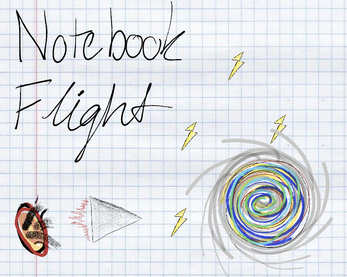 Notebook
Flight